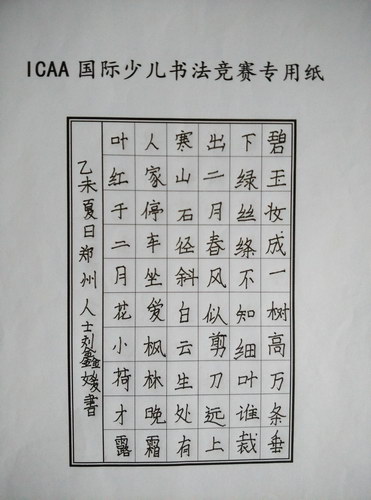 ICAA国际少儿书法竞赛专用纸
碧玉妆成一树高万条垂
下绿丝绦不知细叶谁裁
出二月春风似剪刀远上
寒山石径斜白云生处有
人家停车坐爱枫林晚霜
叶红于二月花小荷才露
乙未夏日郑州人士刘鑫媛書